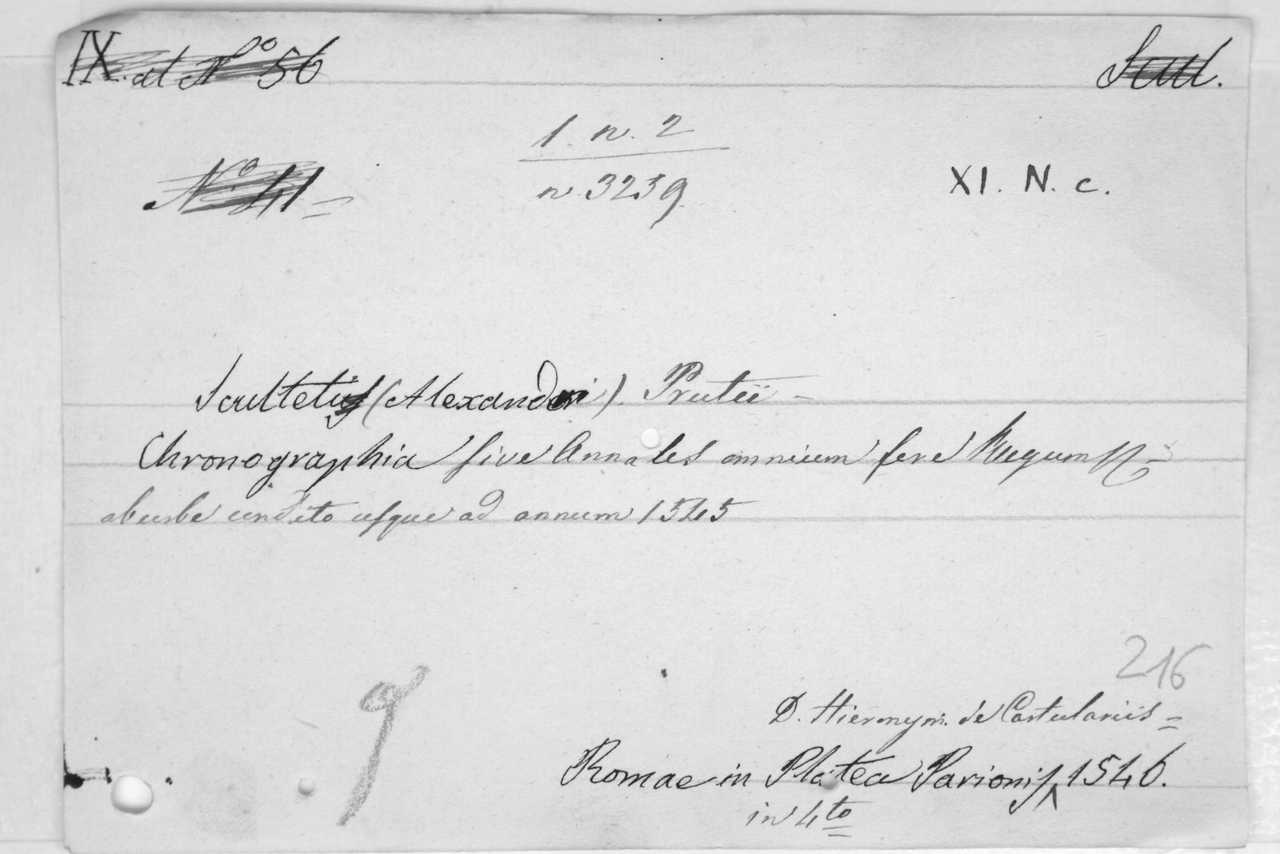 IX. at N° 56
Scul.
1. n. 2
N° 41 =
n. 3239
XI. N. c.
Scultetus (Alexander). Pruteii -
Chronographia sive Annales omnium fere Regum
ab urbe condito usque ad annum 1545
216
D. Hieronym. de Cartulariis =
Romae in Platea Parionis, 1546.
in 4to